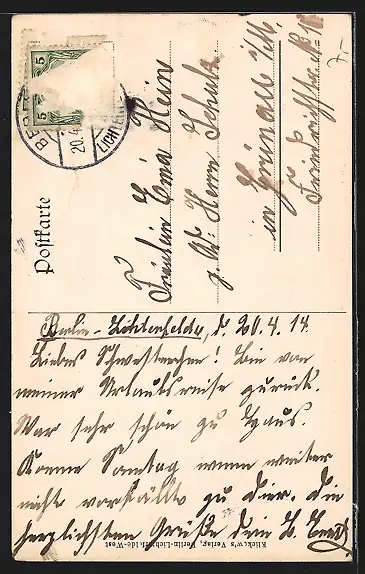 Postkarte
5
5
20.4
Fräulein Erna Hein
z. Zt. Herrn Schulz
in Grünau
7,-
Berlin-Lichterfelde, d. 20.4.14.
Liebes Schwesterchen! Bin von
meiner Urlaubsreise zurück.
War sehr schön zu Haus.
Komme Sonntag wenn weiter
nichts vorfällt zu Dir. Die
herzlichsten Grüße Dein B.
Klickow's Verlag, Berlin-Lichterfelde-West